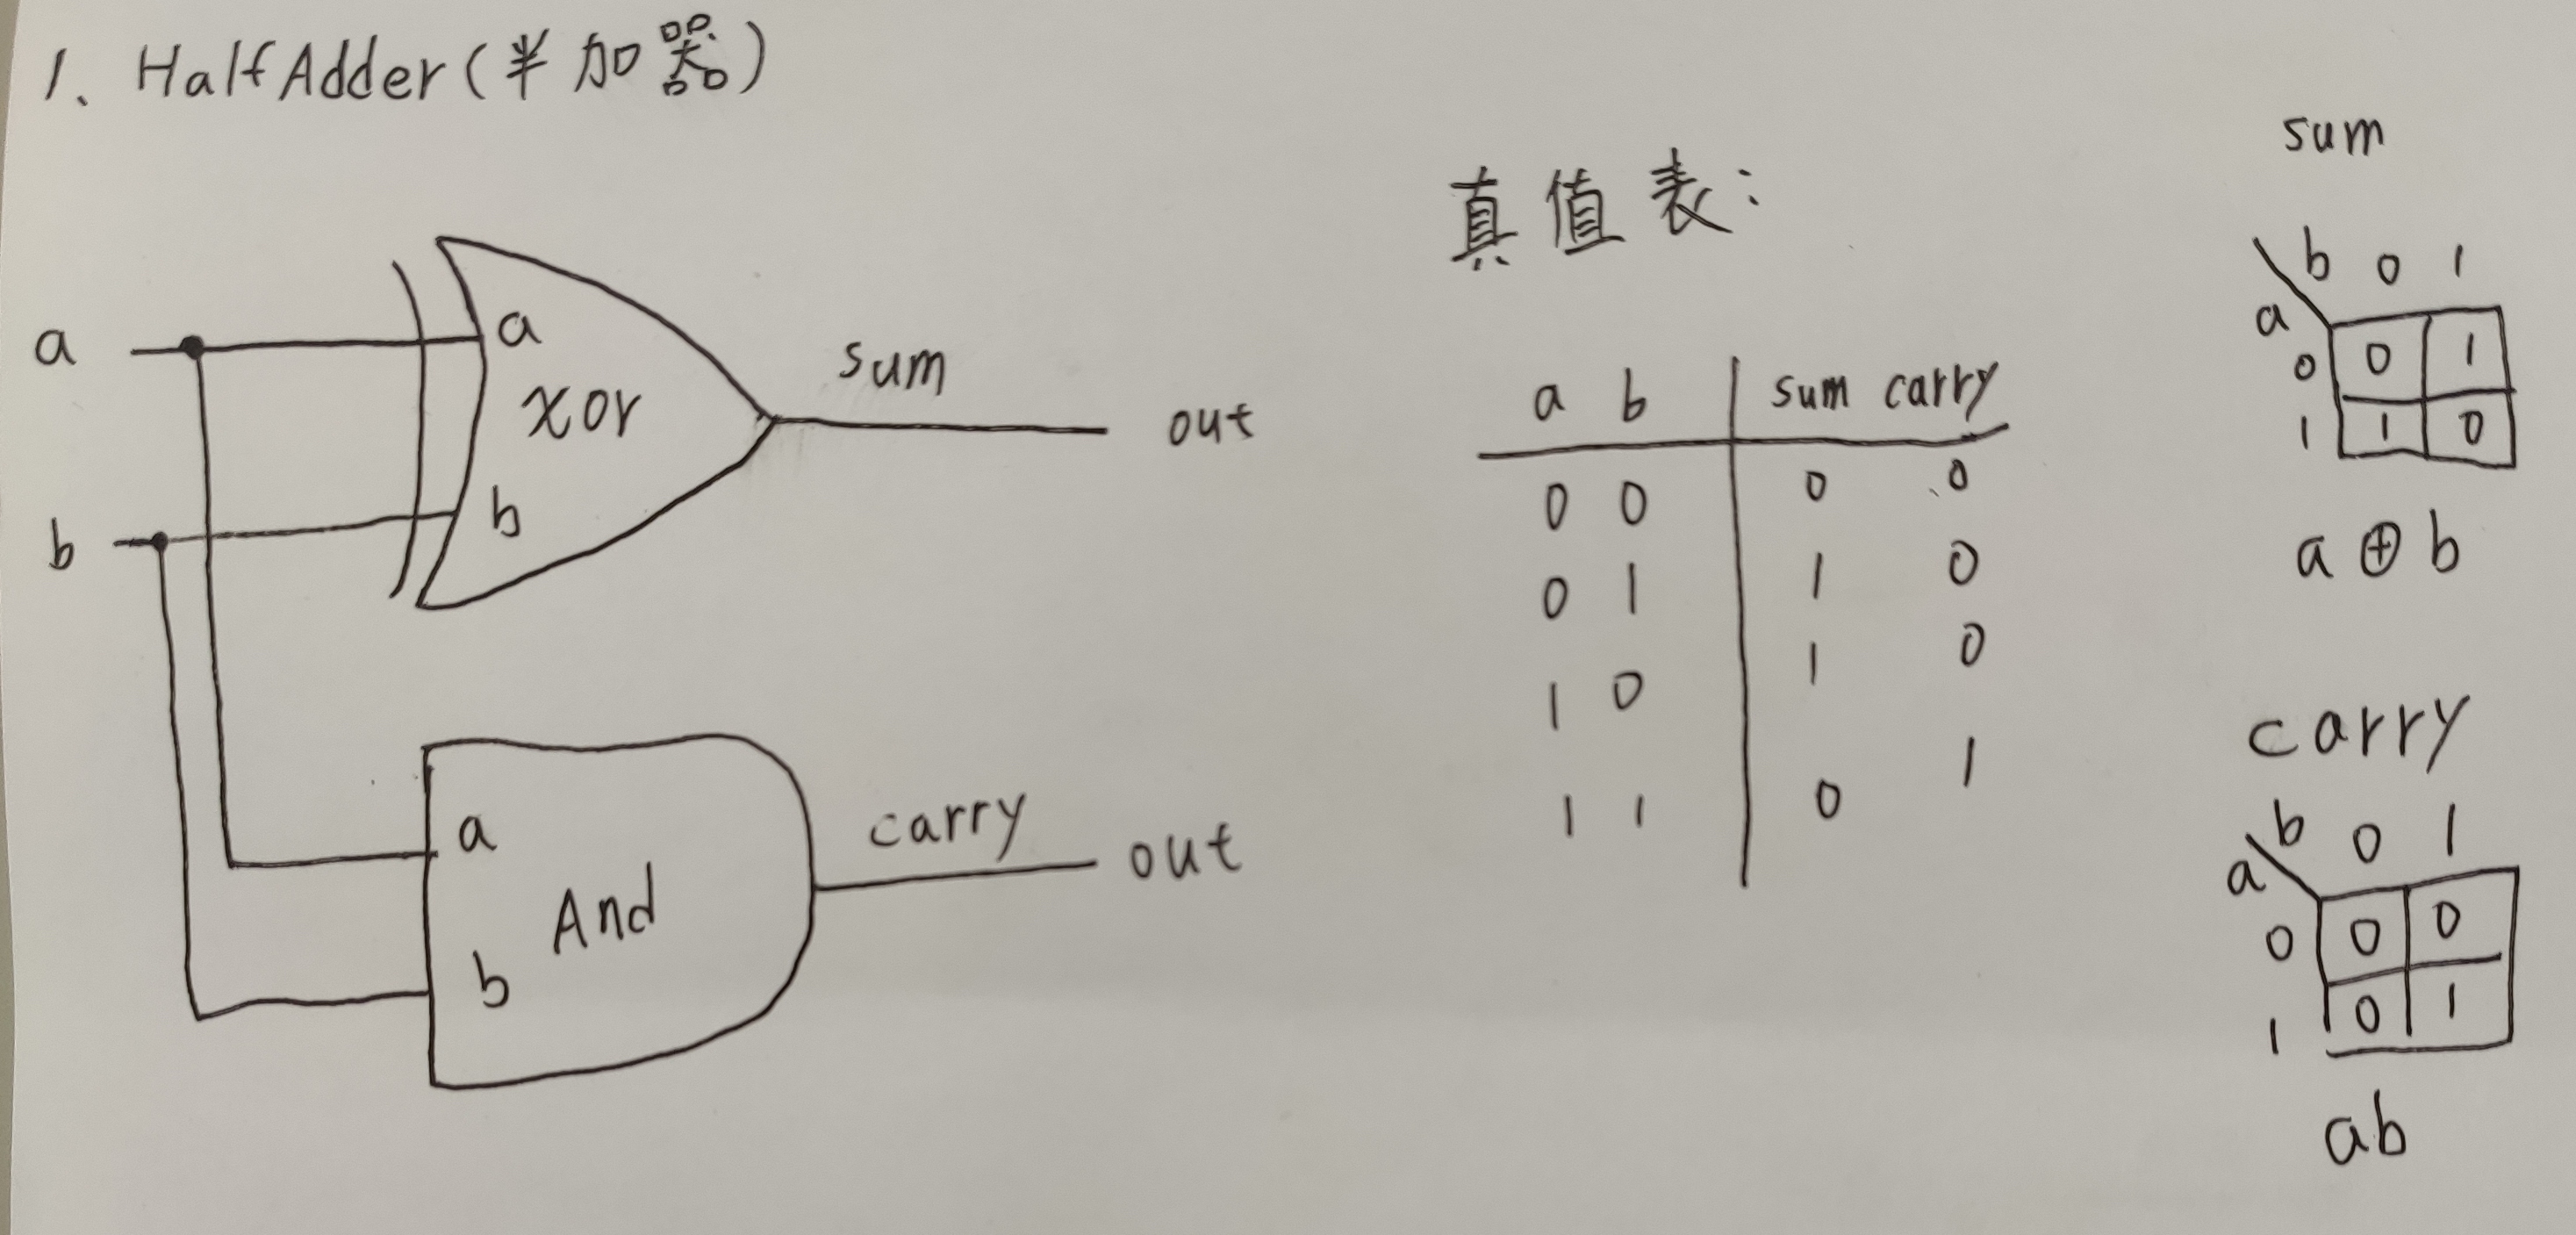 1、HalfAdder(半加器)
a
b
a
xor
b
sum
out
a
And
b
carry
out
真值表:
a b sum carry
0 0 0 0
0 1 1 0
1 0 1 0
1 1 0 1
sum
b 0 1
a
0 0 1
1 1 0
a⊕b
carry
b 0 1
a
0 0 0
1 0 1
ab